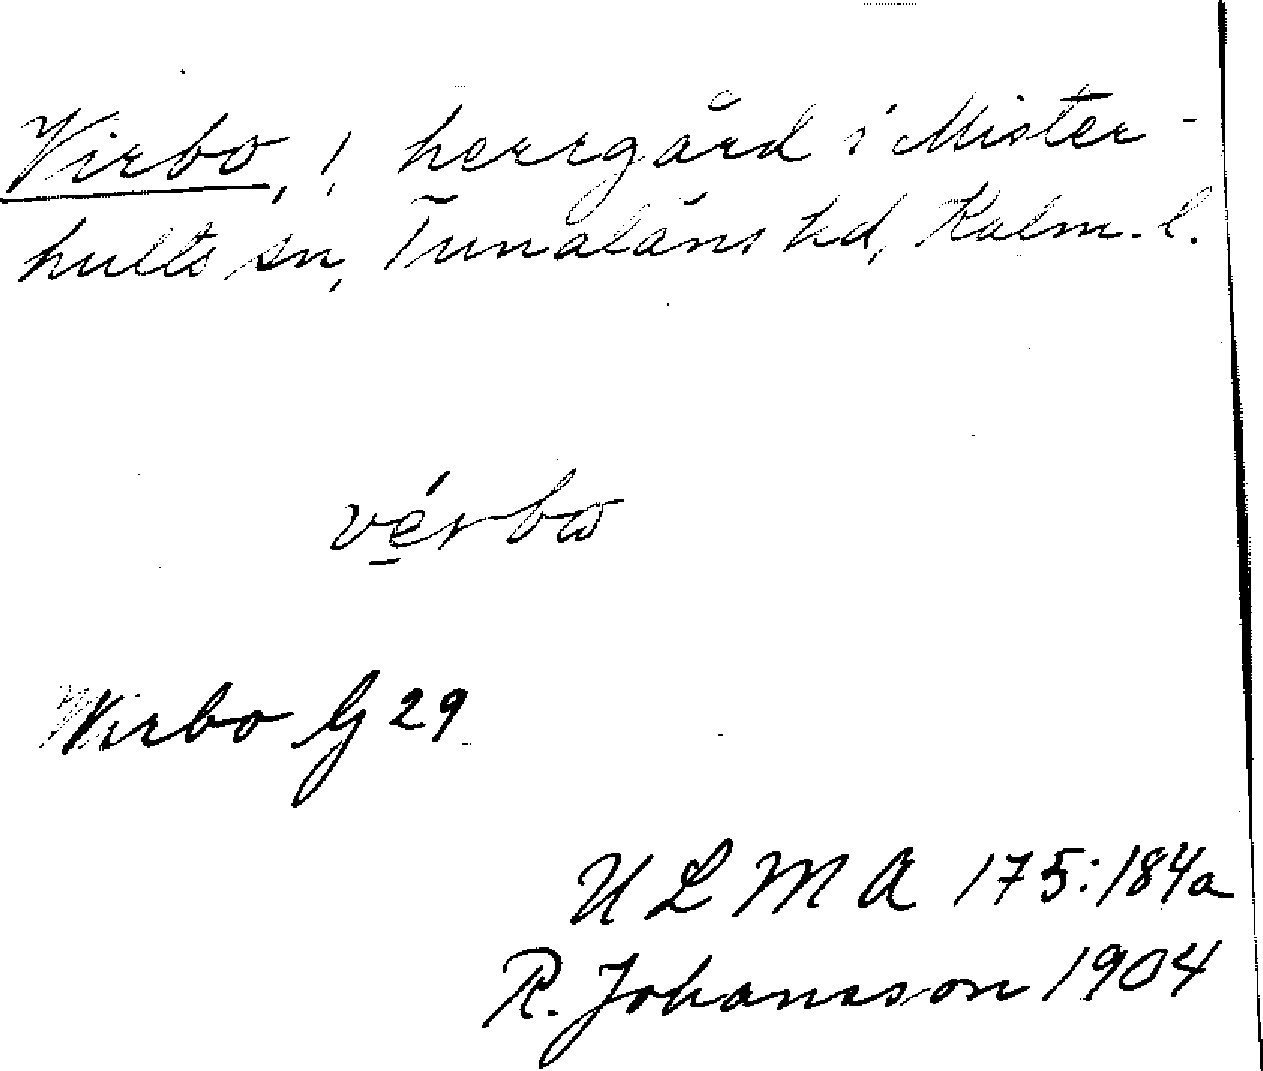 Virbo, 1, herrgård i Mister-
hults sn, Tunaläns hd, Kalm. l.
vérbω
Virbo G 29
ULMA 175:184a
R. Johansson 1904